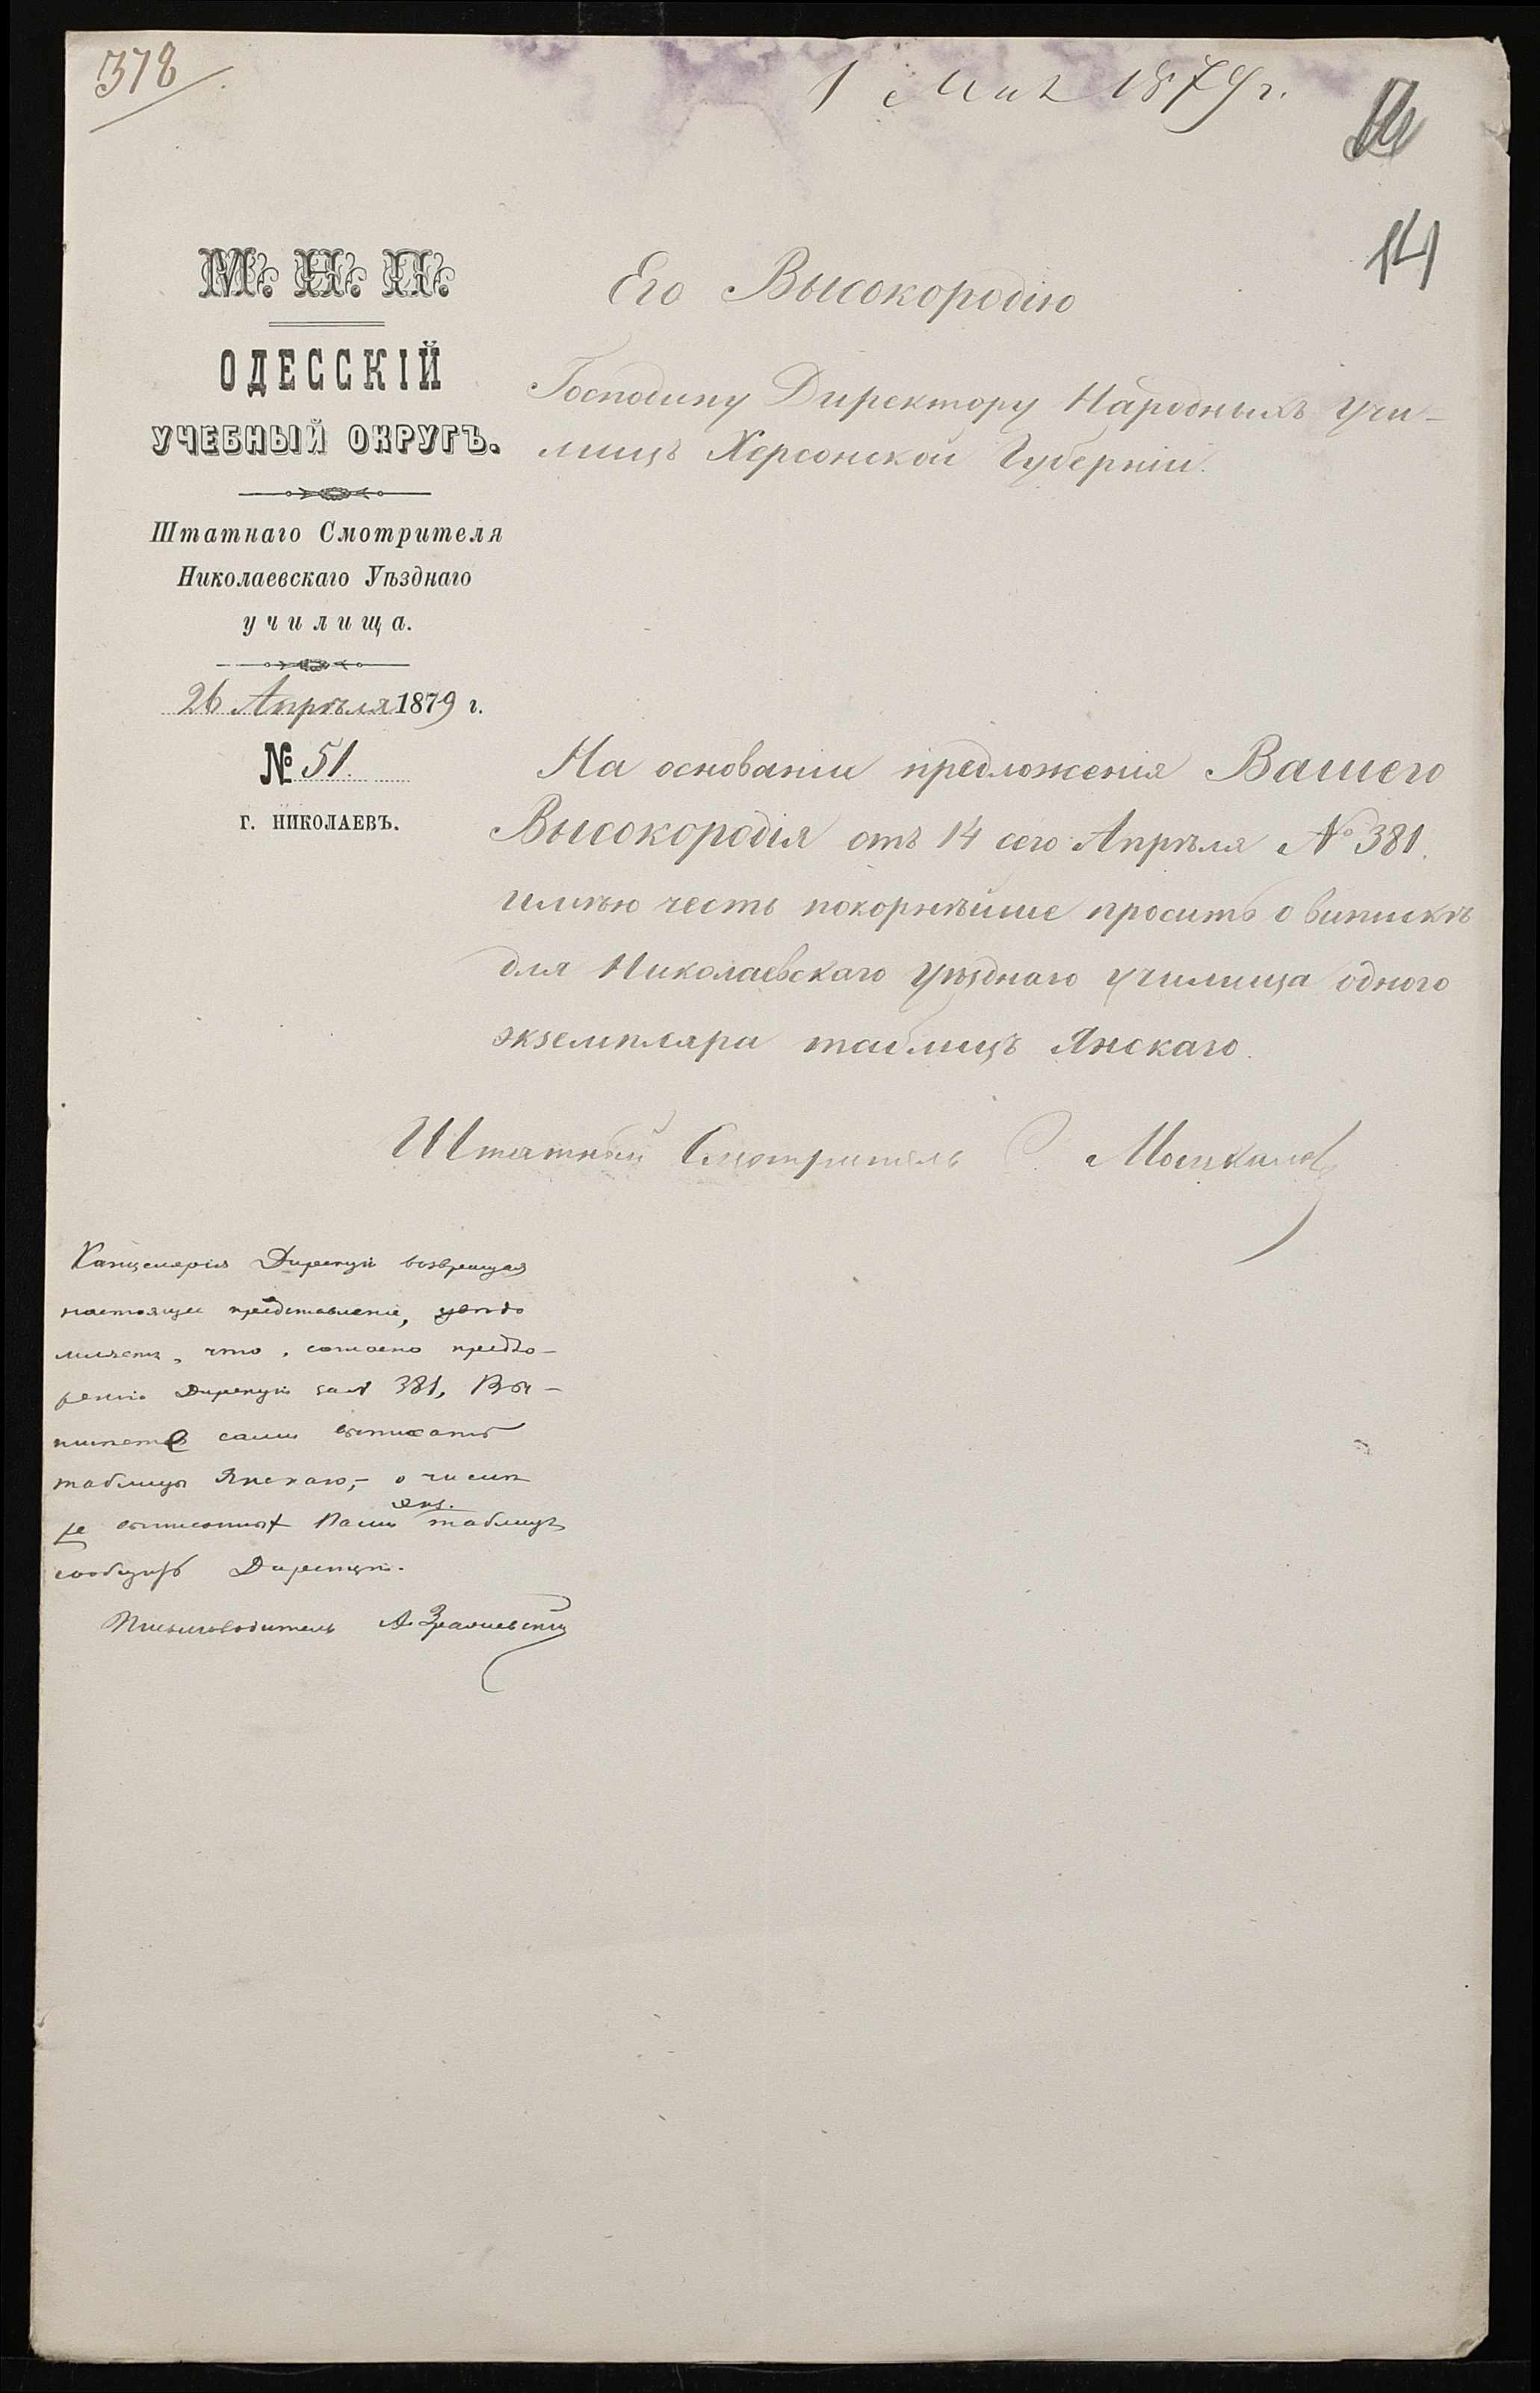 378
1 Мая 1879 г.
14
М. Н. П.
ОДЕССКІЙ
УЧЕБНЫЙ ОКРУГЪ.
Штатнаго Смотрителя
Николаевскаго Уѣзднаго
училища.
26 Апрѣля 1879 г.
№ 51.
Г. НИКОЛАЕВЪ.
Его Высокородію
Господину Директору Народныхъ Учи-
лищъ Херсонской Губерніи.
На основаніи предложенія Вашего
Высокородія отъ 14 сего Апрѣля № 381.
имѣю честь покорнѣйше просить о выпискѣ
для Николаевскаго Уѣзднаго училища одного
экземпляра таблицъ Янскаго.
Штатный Смотритель
Канцелярія Дирекціи возвращая
настоящее представленіе, увѣдо
мляетъ, что, согласно предло-
женію Дирекціи за № 381, Вы-
сами выписать
таблицы Янскаго, - о числѣ
же выписанныхъ Вами экз. таблицъ
сообщить Дирекціи.
Письмоводитель А.